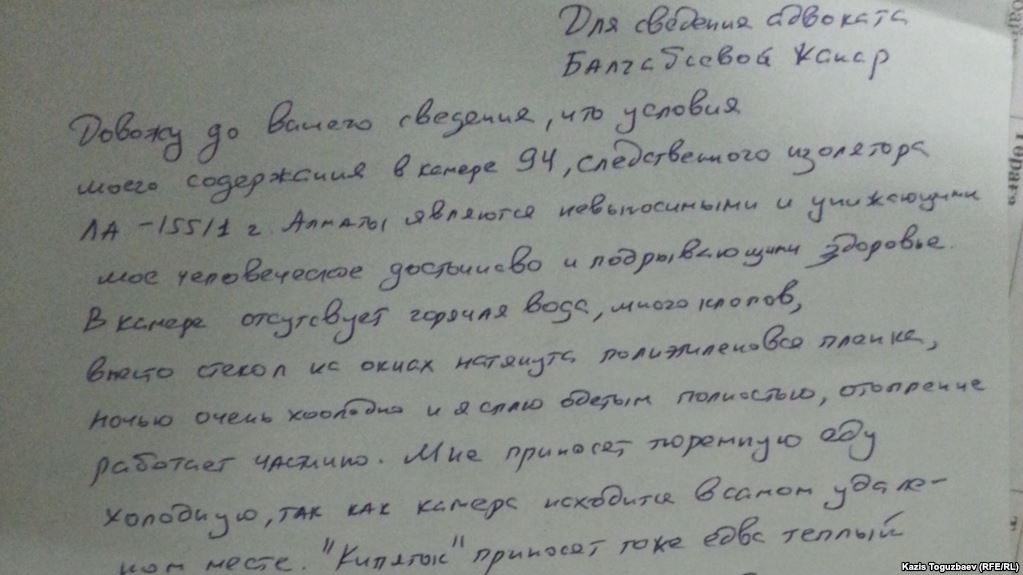 Для сведения адвоката
Балгабаевой Жанар
Довожу до вашего сведения, что условия
моего содержания в камере 94, следственного изолятора
ЛА-155/1 г. Алматы являются невыносимыми и унижающими
мое человеческое достоинсво и подрывающими здоровье.
В камере отсутсвует горячая вода, много клопов,
вместо стекол на окнах натянута полиэтиленовая пленка,
ночью очень хоолодно и я сплю одетым полностью, отопление
работает частично. Мне приносят тюремную еду
холодную, так как камера находится в самом удале-
ном месте. "Кипяток" приносят тоже едва теплый
Kazis Toguzbaev (RFE/RL)